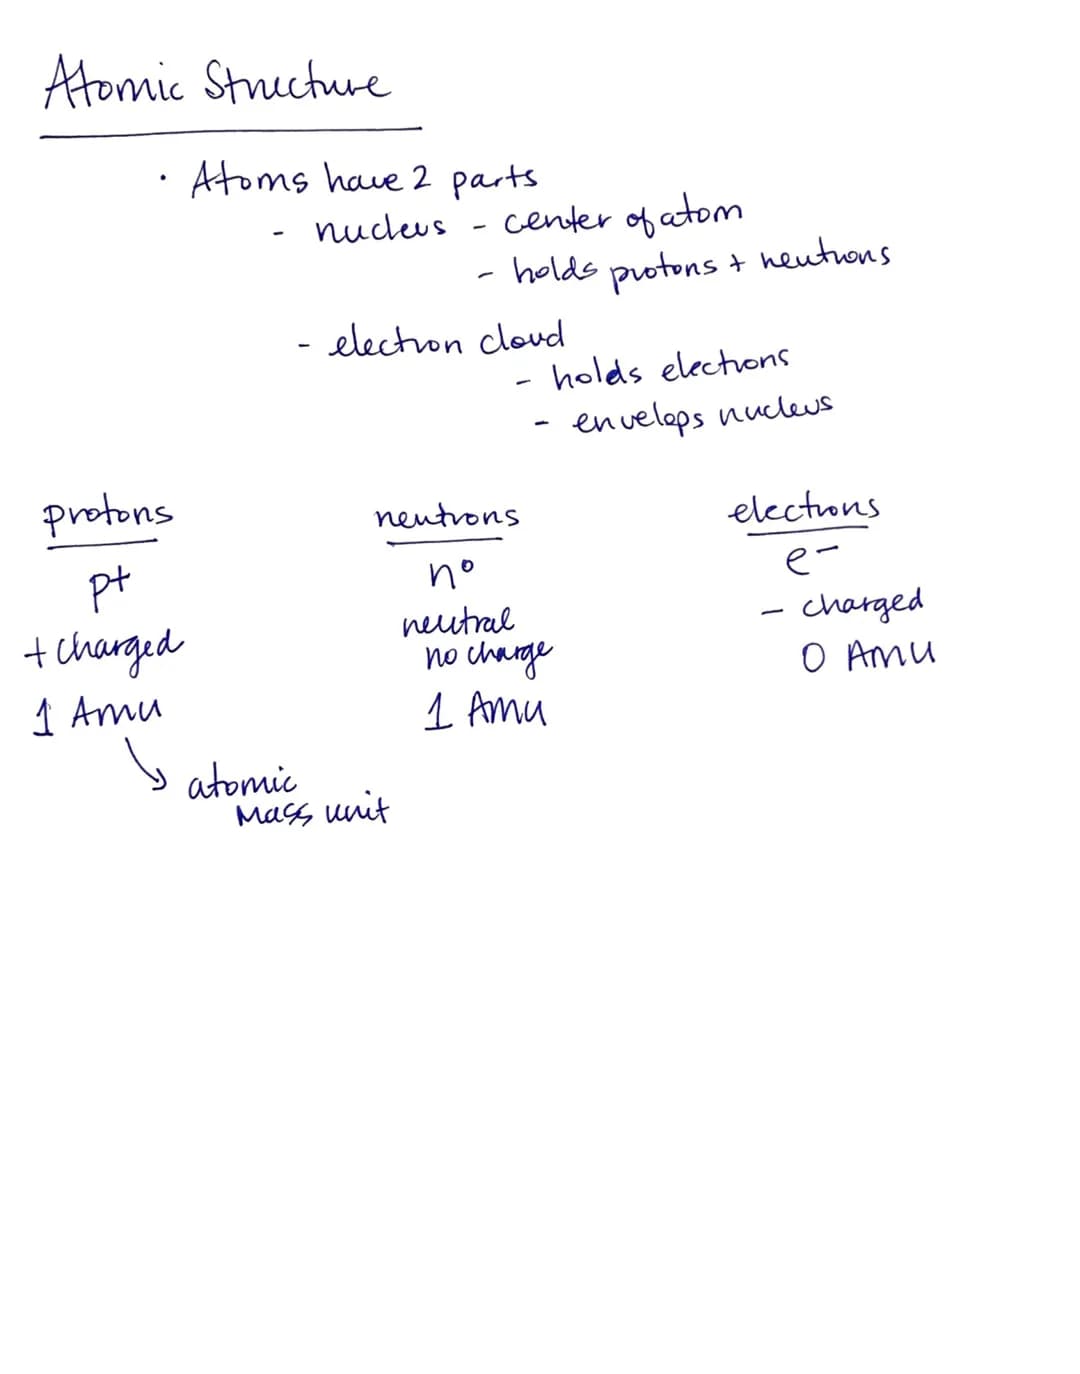 Atomic Structure
· Atoms have 2 parts
- nucleus - center of atom
- holds protons + neutrons
- electron cloud
- holds electrons
- envelops nucleus
protons neutrons electrons
p+ n° e-
+ charged neutral - charged
no charge 0 Amu
1 Amu 1 Amu
↘ atomic
Mass unit